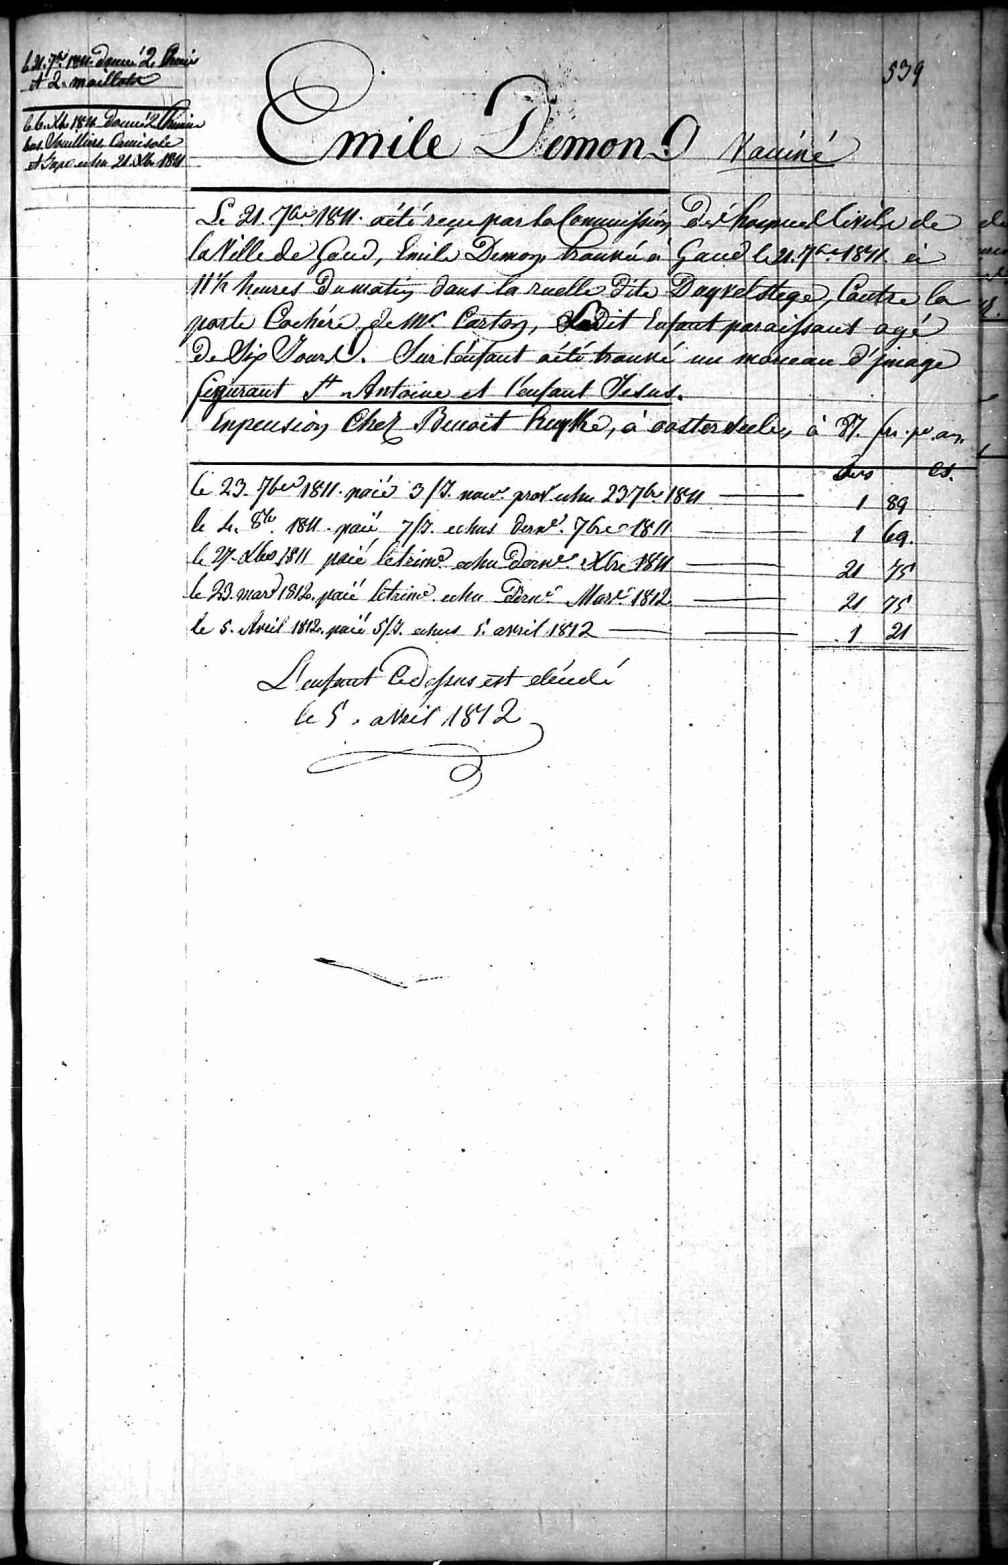 539
le 21. 7bre 1811. donné 2 Chemis
et 2. maillots
le 6. Xbre 1811. donné 2 Chemise
bas. Souilliers Camisole
et Jupe echu 21. Xbre 1811
Emile Demon. Vacciné
Le 21. 7bre 1811. a été reçu par la Commission des hospices Civils de
la Ville de Gand, Emile Demon, trouvé à Gand le 21. 7bre 1811. à
11½ heures du matin dans la ruelle dite Duyvelstege, Contre la
porte Cochère de Mr. Carton, Ledit Enfant paraissant agé
de Six Jours. Sur l'enfant a été trouvé un morceau d'Jmage
figurant St Antoine et l'enfant Jesus.
En pension Chez Benoit, à oosterseele, à 87. frs. pr. an.
frs Cs.
le 23. 7bre 1811. paié 3/J. nour. prov. echu 23 7bre 1811 1 89
le 4. 8bre 1811. paié 7/J. echus dernr. 7bre 1811 1 69.
le 27. Xbre 1811 paié le trime. echu dernr. Xbre 1811 21 75
le 23. mars 1812. paié le trime. echu Dernr. Mars 1812 21 75
le 5. Avril 1812. paié 5/J. echus 5. avril 1812 1 21
L'enfant Cidessus est décédé
le 5. avril 1812